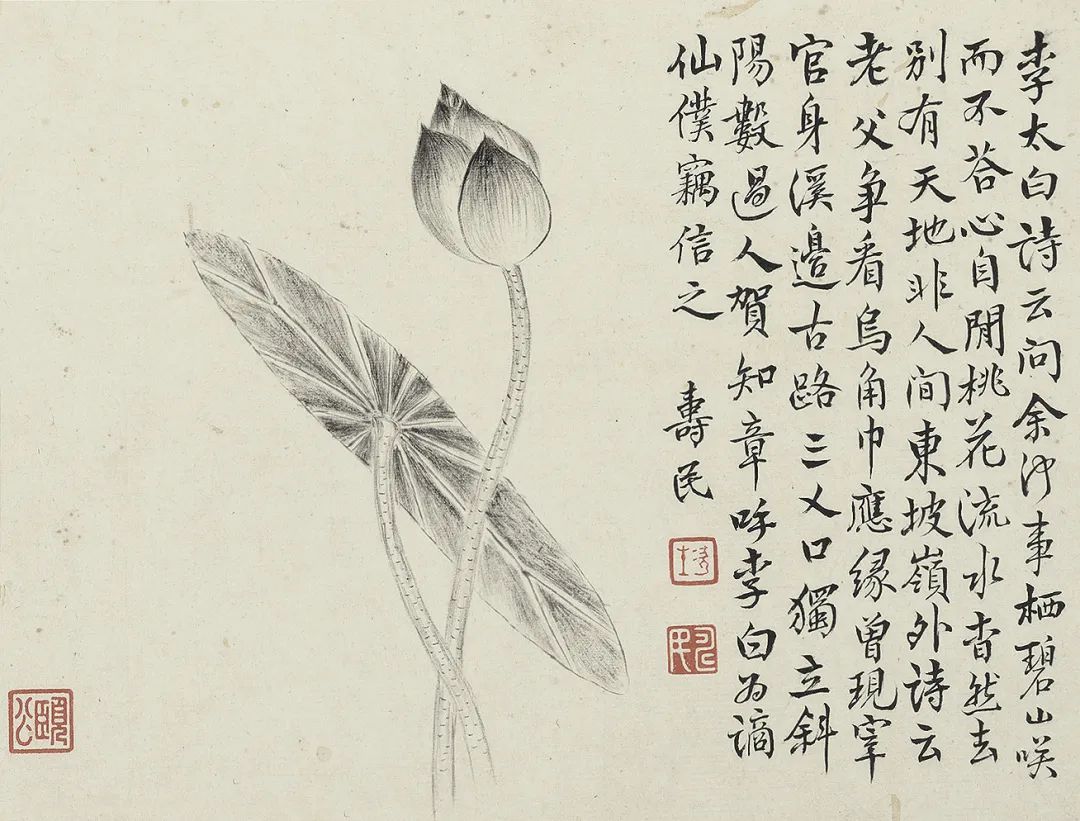 李太白詩云問余何事栖碧山咲
而不荅心自閒桃花流水杳然去
別有天地非人間東坡嶺外詩云
老父争看烏角巾應緣曾現宰
官身溪邊古路三乂口獨立斜
陽數過人賀知章呼李白為謫
仙僕竊信之 壽民
頤公